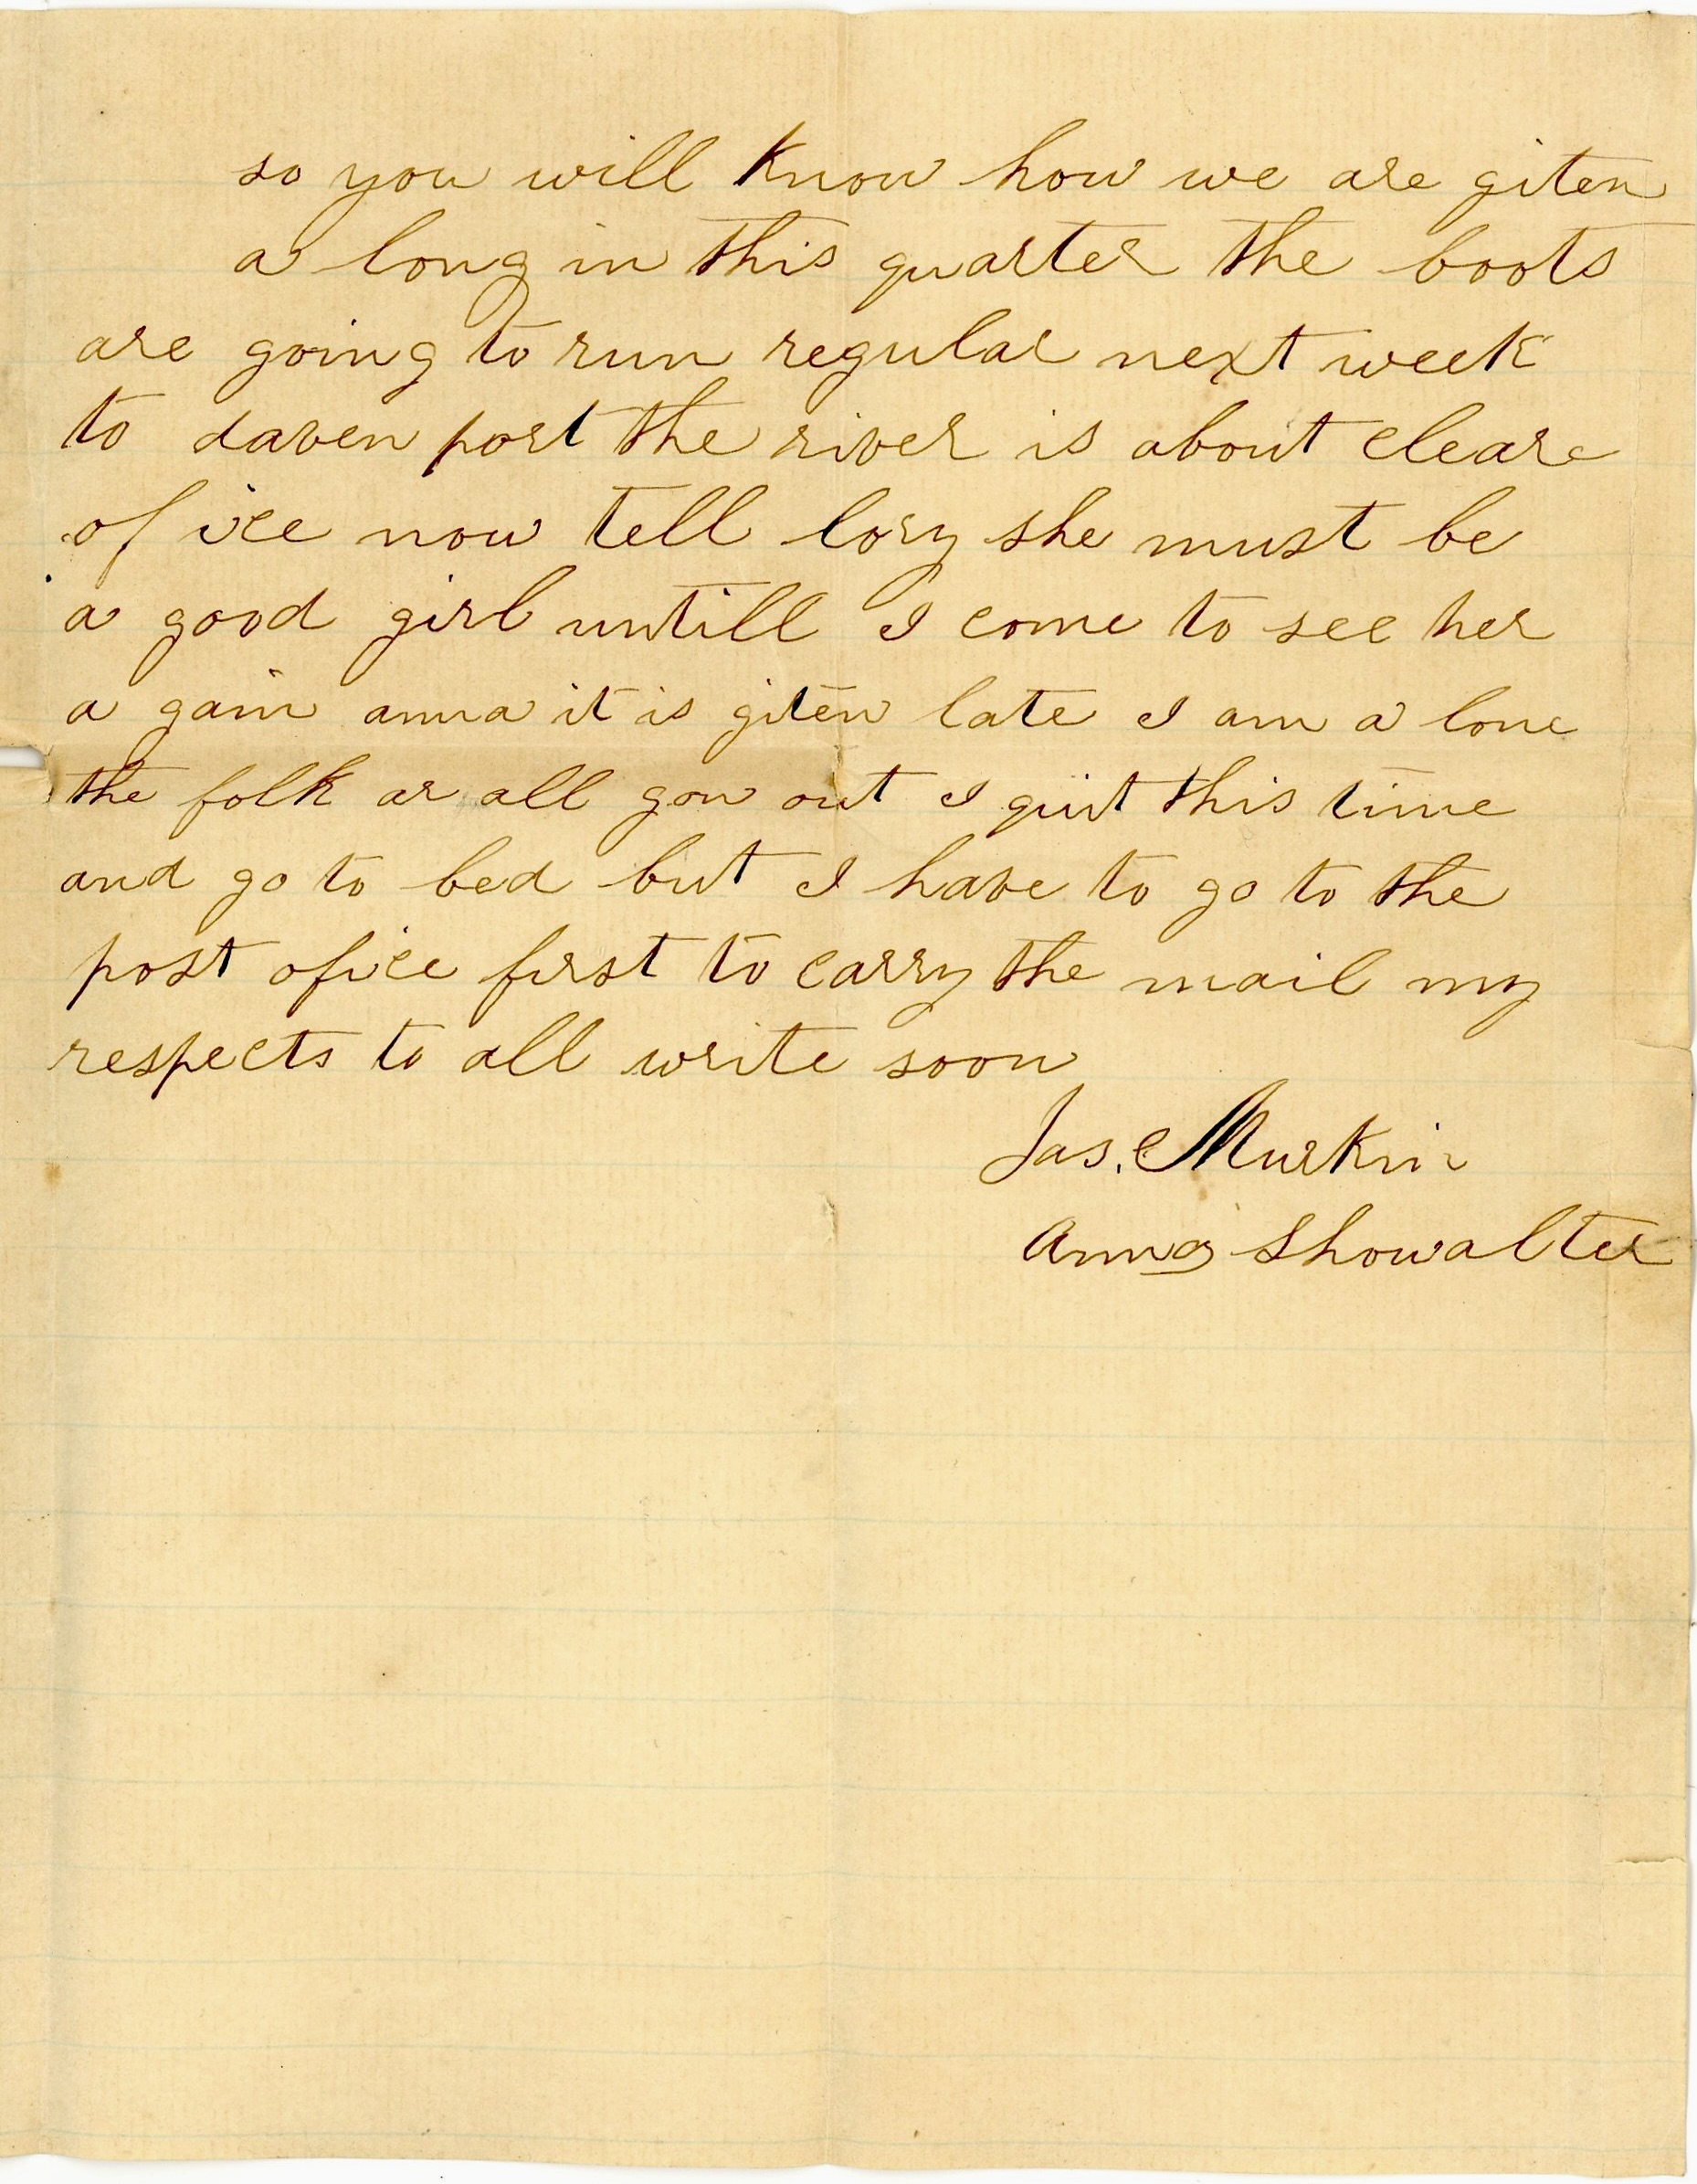 so you will know how we are giten
a long in this quarter the boots
are going to run regular next week
to daven port the river is about cleare
of ice now tell lory she must be
a good girl untill I come to see her
a gain anna it is giten late I am a lone
the folk ar all gon out I quit this time
and go to bed but I have to go to the
post ofice first to carry the mail my
respects to all write soon
Jas. Murkin
Anna Showalter